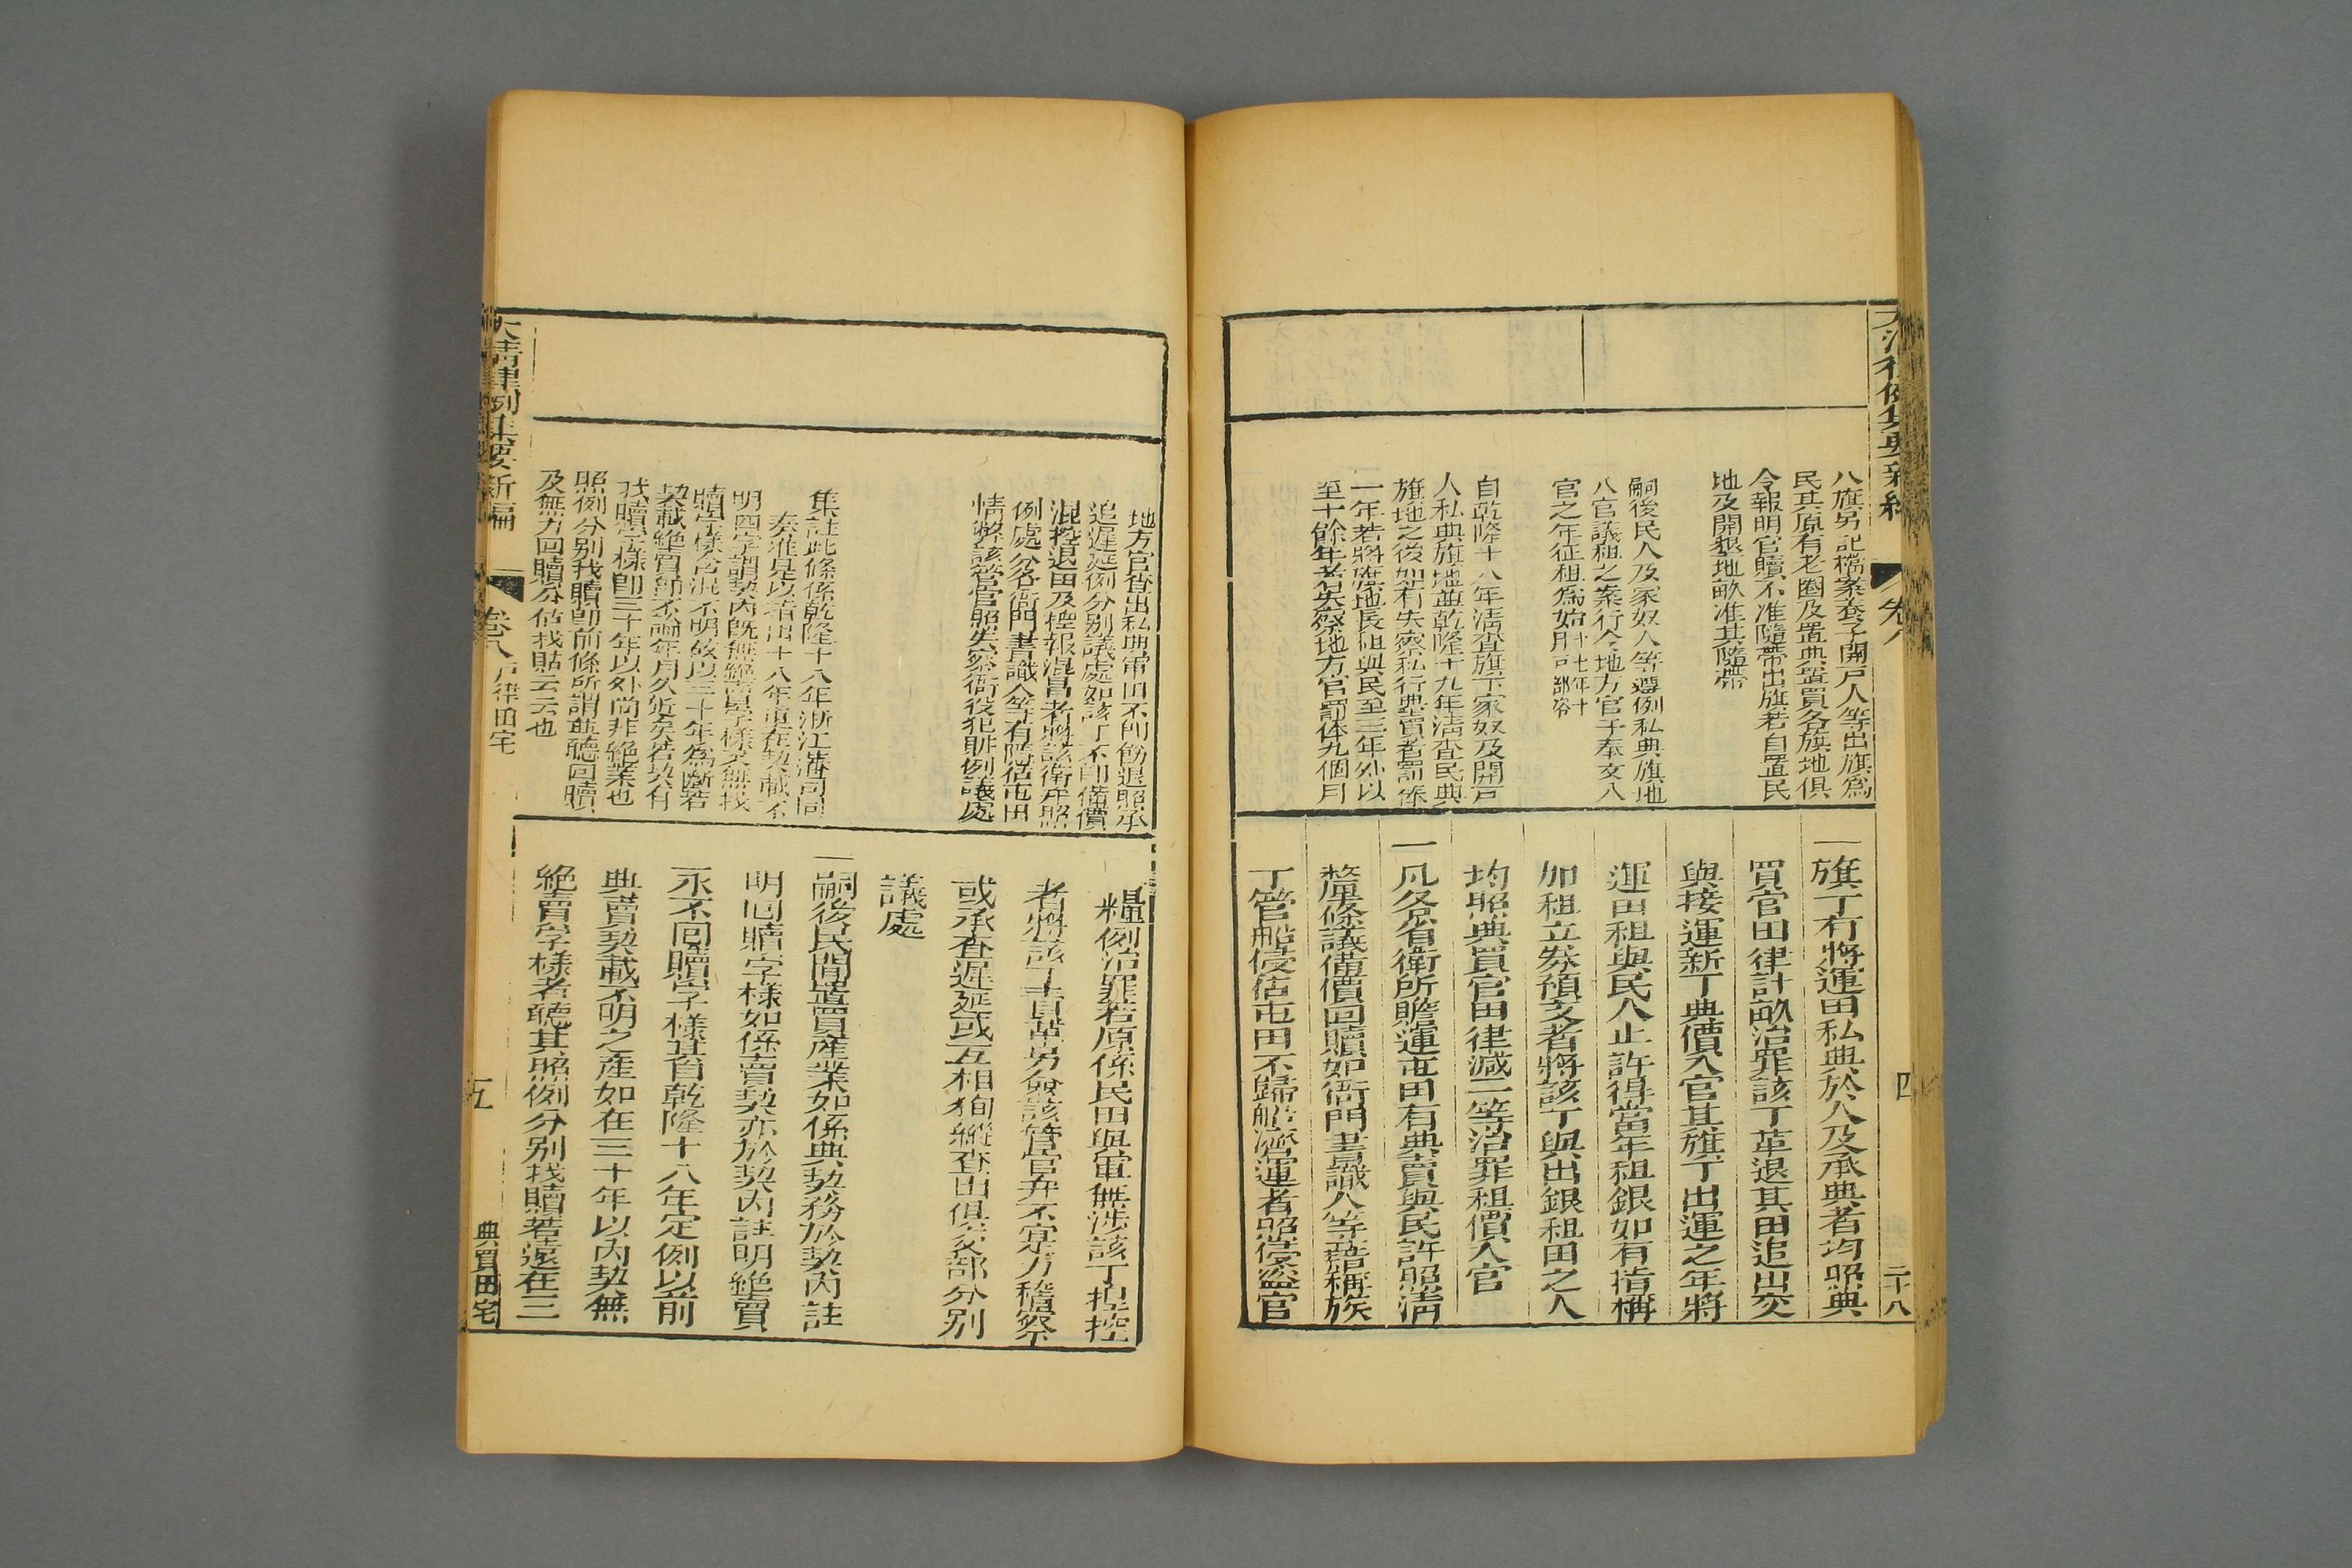 八旗另記檔案養子開戶人等出旗爲
民其原有老圈及置典置買各旗地俱
令報明官贖不准隨帶出旗若自置民
地及開墾地畝准其隨帶
嗣後民人及家奴人等違例私典旗地
入官議租之案行令地方官于奉文入
官之年征租爲始
自乾隆十八年清查旗下家奴及開戶
人私典旗地並乾隆十九年清查民典
旗地之後如有失察私行典賣者罰俸
一年若將旗地長租與民至三年外以
至十餘年者失察地方官罰俸九個月
一旗丁有將運田私典於人及承典者均照典
買官田律計畝治罪該丁革退其田追出交
與接運新丁典價入官其旗丁出運之年將
運田租與民人止許得當年租銀如有指稱
加租立劵預支者將該丁與出銀租田之人
均照典買官田律減二等治罪租價入官
一凡各省衛所贍運屯田有典賣與民許照清
釐條議備價回贖如衙門書識人等藉稱族
丁管船侵佔屯田不歸船濟運者照侵盜官
四
二十八
地方官查出私典軍田不即飭退照承
追遲延例分別議處如該丁不即備價
混控退田及控報混冒者將該衛弁照
例處分各衙門書識人等有隱佔屯田
情弊該管官照失察衙役犯贓例議處
集註此條係乾隆十八年浙江藩司同
奏准是以指出十八年重在契載不
明四字謂契內既無絕賣字樣又無找
贖字樣含混不明故以三十年爲斷若
契載絕賣卽不論年月久近矣若契有
找贖字樣卽三十年以外尚非絕業也
照例分別找贖卽前條所謂並聽回贖
及無力回贖分估找貼云云也
糧例治罪若原係民田與軍無涉該丁揑控
者將該丁責革另僉該管官弁不實力稽察
或承查遲延或互相狥縱查出俱交部分別
議處
一嗣後民間置買產業如係典契務於契內註
明回贖字樣如係賣契亦於契內註明絕賣
永不回贖字樣其自乾隆十八年定例以前
典賣契載不明之產如在三十年以內契無
絕賣字樣者聽其照例分別找贖若遠在三
大清律例集要新編
卷八
戶律田宅
五
典買田宅